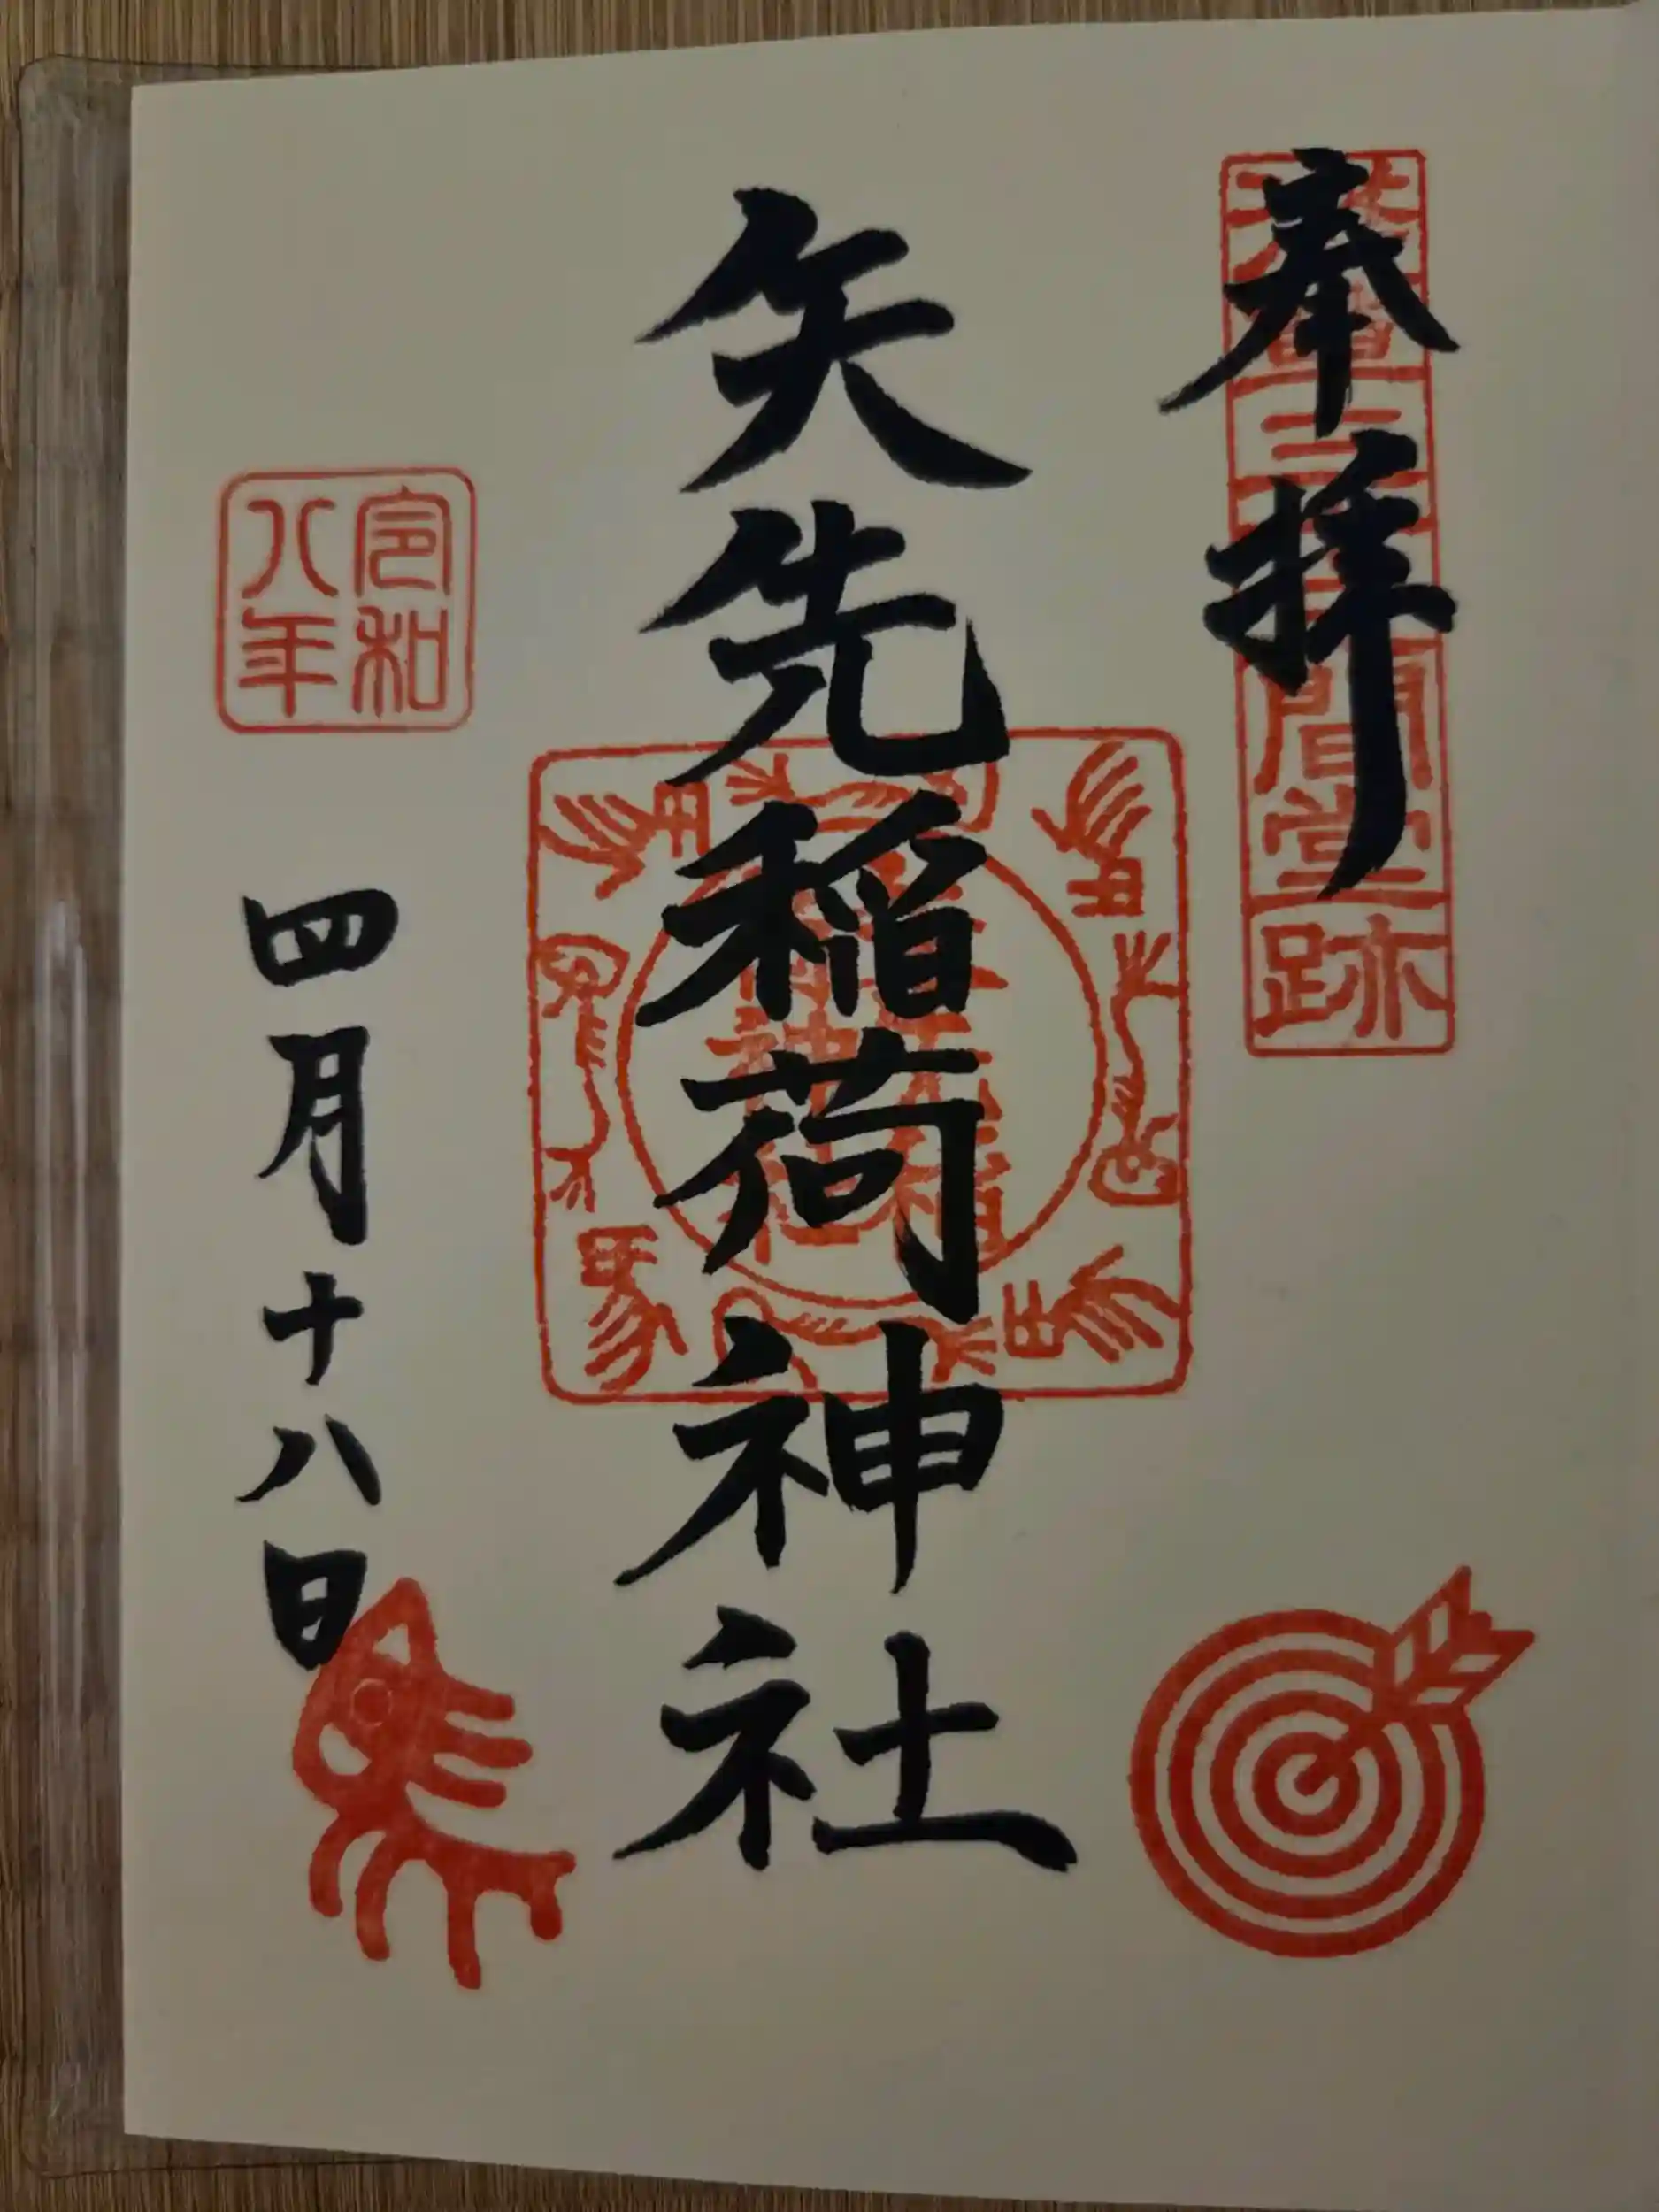 奉拝
三十三間堂跡
矢先稲荷神社
令和
八年
四月十八日